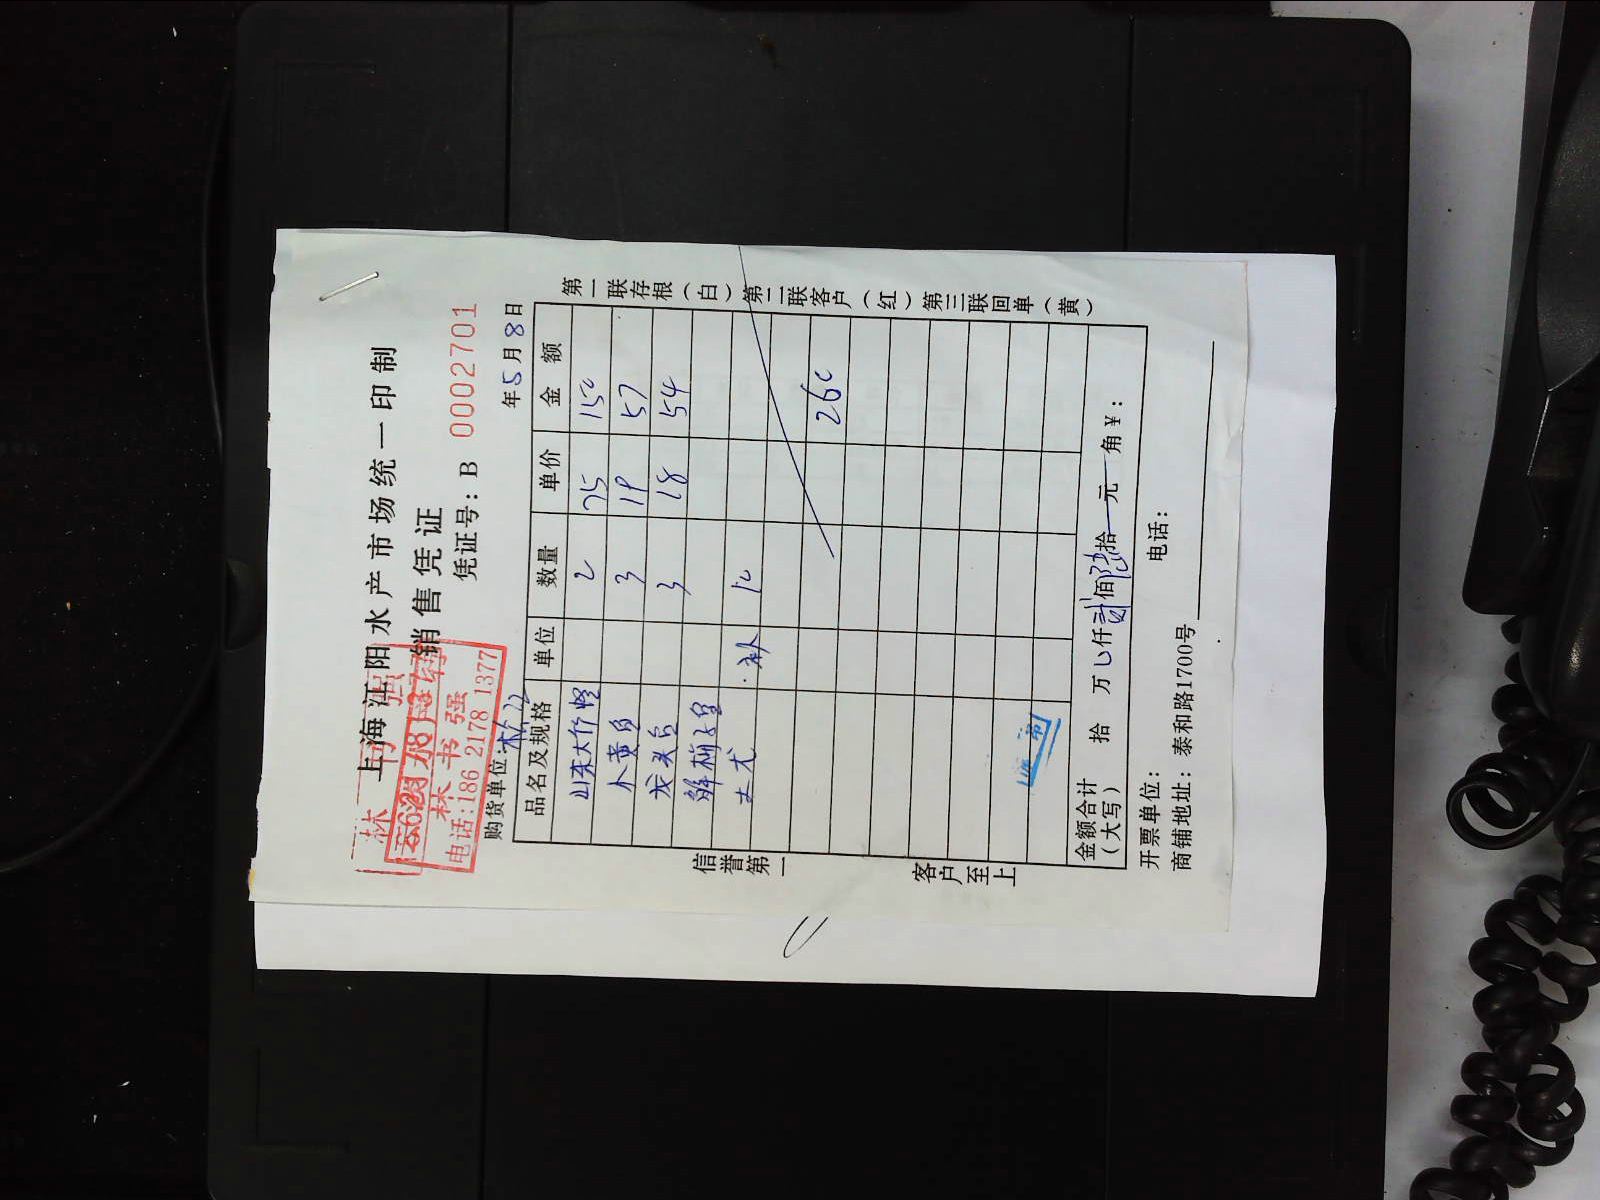 上海江阳水产市场统一印制
销售凭证
凭证号：B 0002701
林书强
电话:186 2178 1377
购货单位: 年5月8日
品名及规格 单位 数量 单价 金额
山东大竹蛏 2 75 150
小黄鱼 3 19 57
龙头鱼 3 18 54
补 10
260
金额合计（大写） 拾 万 仟贰佰陆拾 元 角 ¥：
开票单位： 电话：
商铺地址：泰和路1700号
第一联存根（白）第二联客户（红）第三联回单（黄）
信誉第一
客户至上